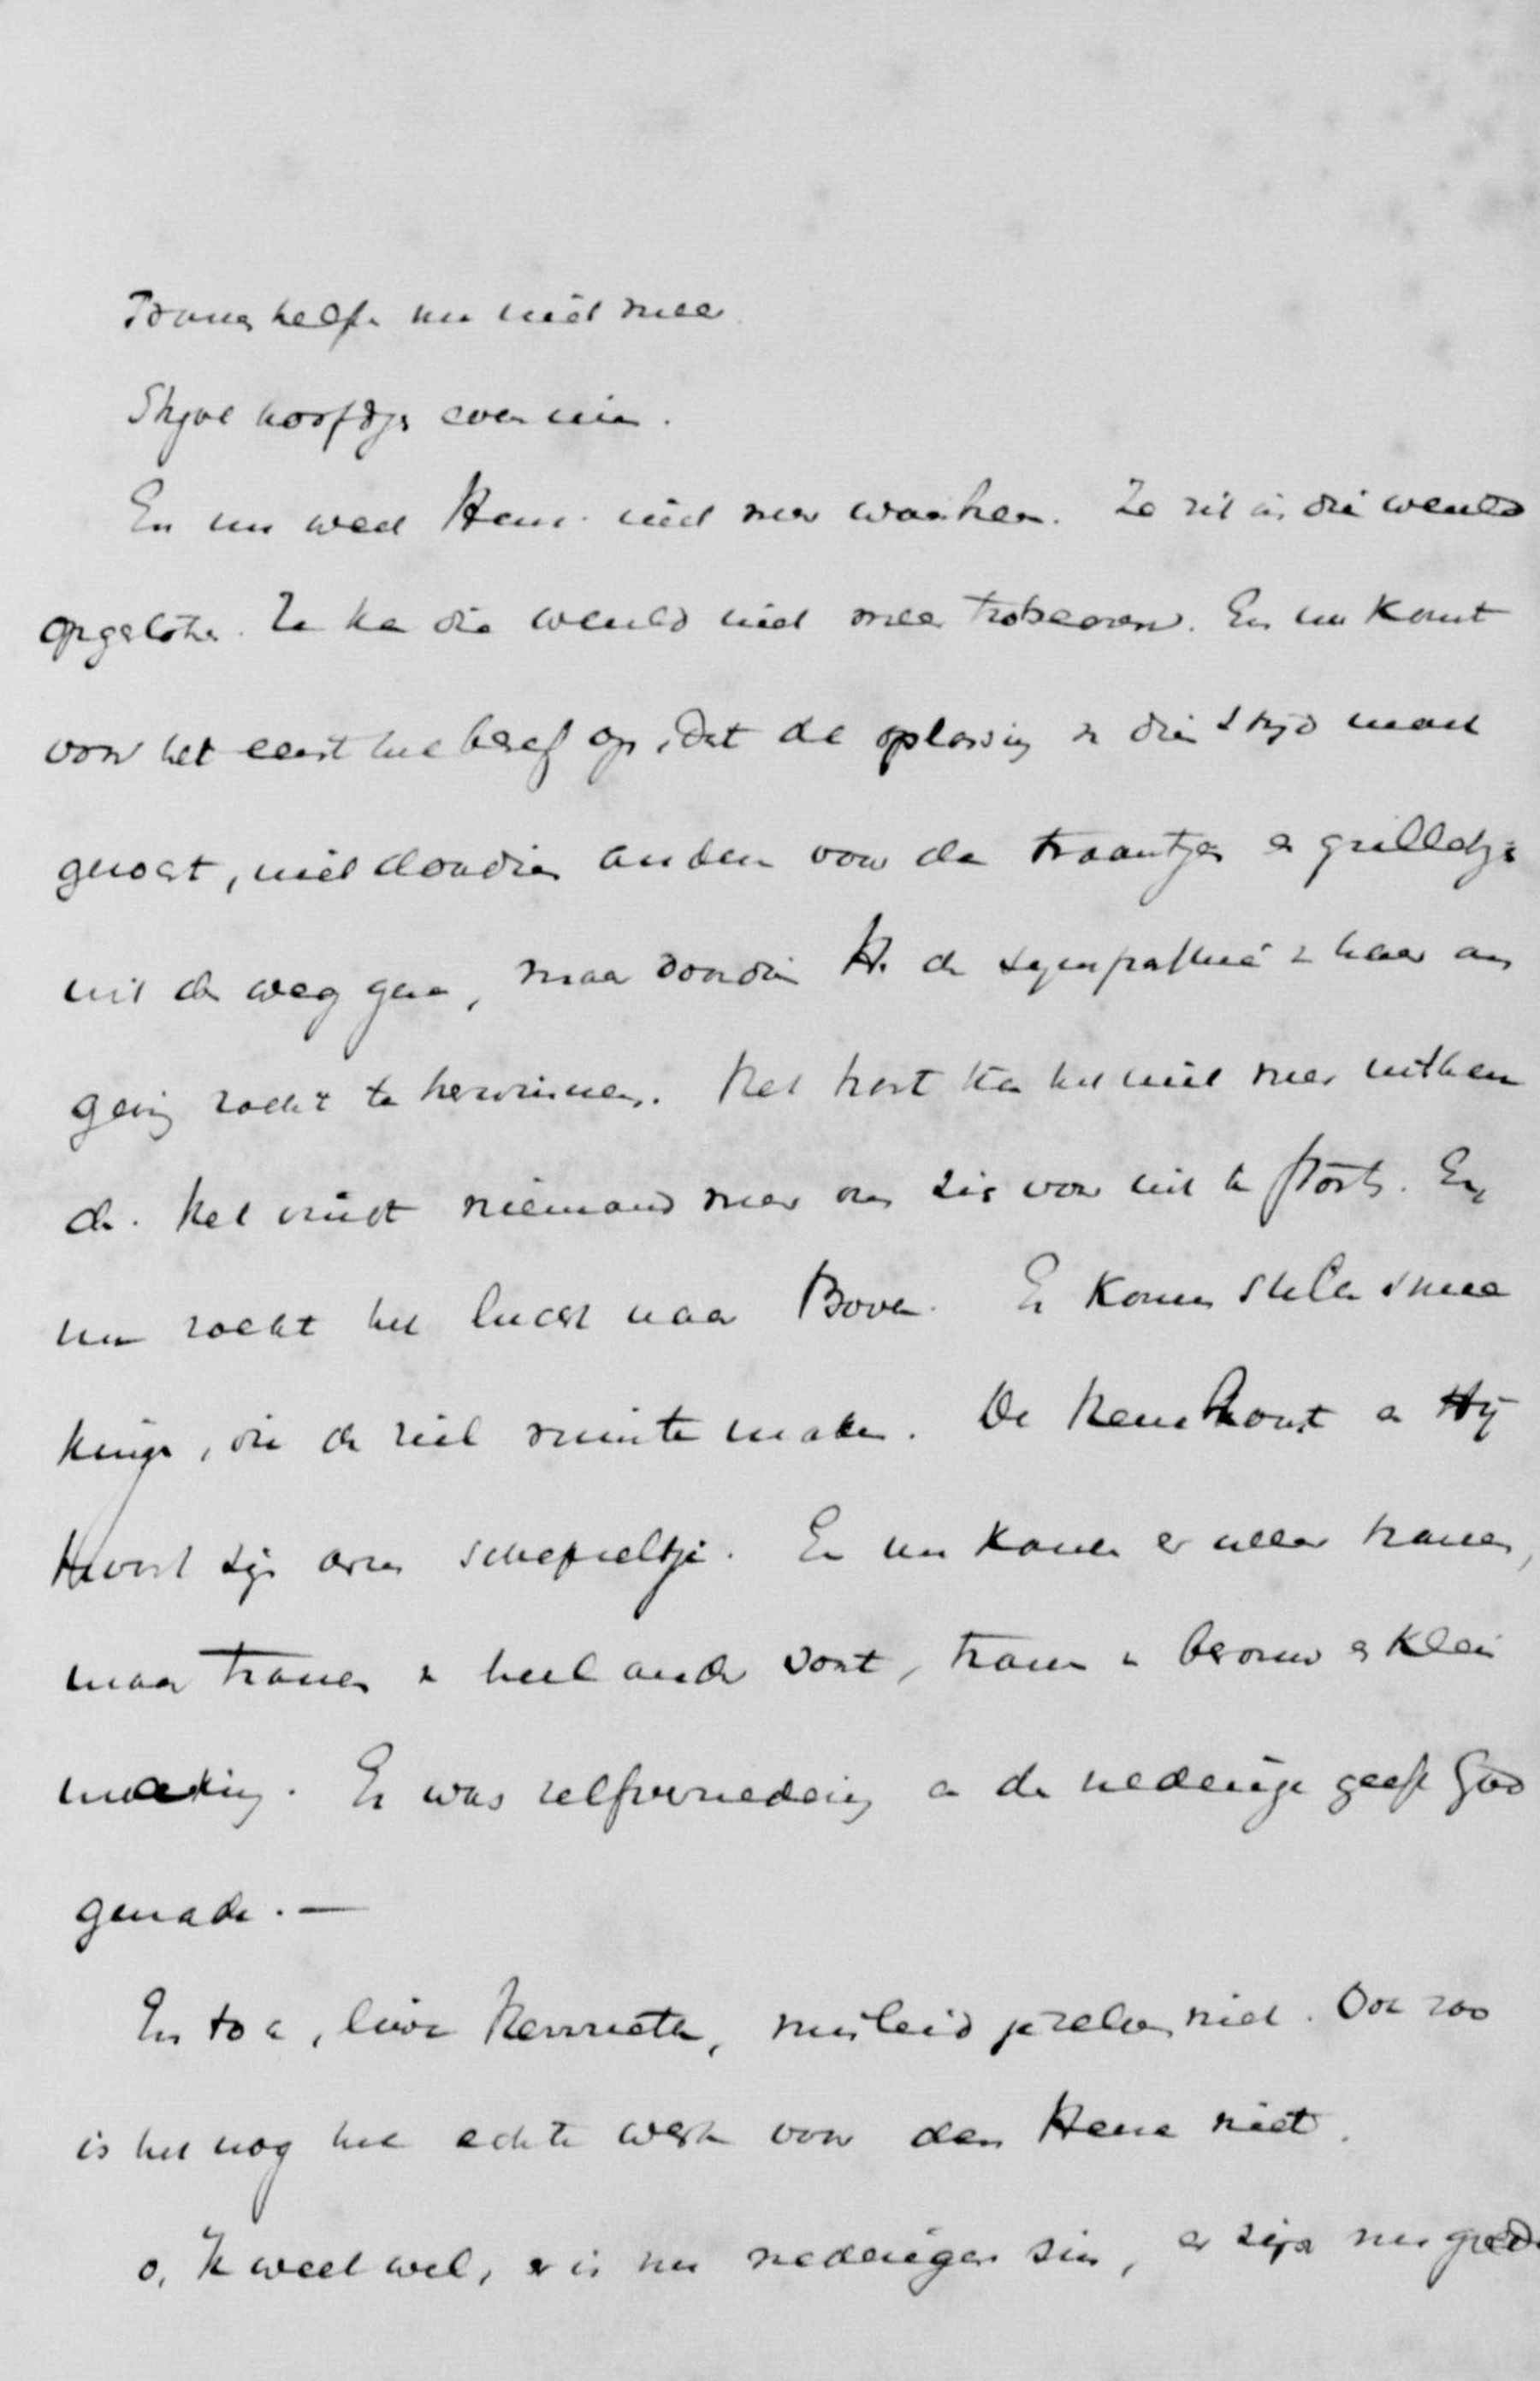 Tranen helpen nu niet meer
Stijve hoofdjes even min.
En nu weet Henr. niet meer waarheen. Ze zit in die wereld
opgesloten. Ze kan die wereld niet meer trotseeren. En nu komt
voor het eerst het besef op, dat de oplossing in die strijd moet
gezocht, niet doordien anderen voor de traantjes en grilletjes
uit de weg gaan, maar doordien H. de sympathie in haar om
geving zoekt te herwinnen. Het hart kan het niet meer uithou
den. Het vindt niemand meer om zich voor uit te storten. En
nu zoekt het lucht naar Boven. Er komen stille smee
kingen, die de ziel ruimte maken. De Heere hoort en Hij
hoort zijn arm schepseltje. En nu komen er weer tranen,
maar tranen van heel ander soort, tranen van berouw en klein
making. Er was zelfvernedering en de nederige geeft God
genade. —
En toch, lieve Henriette, misleid je zelve niet. Ook zoo
is het nog het echte werk voor den Heere niet.
o, Ik weet wel, er is nu nederiger zin, er zijn nu goede